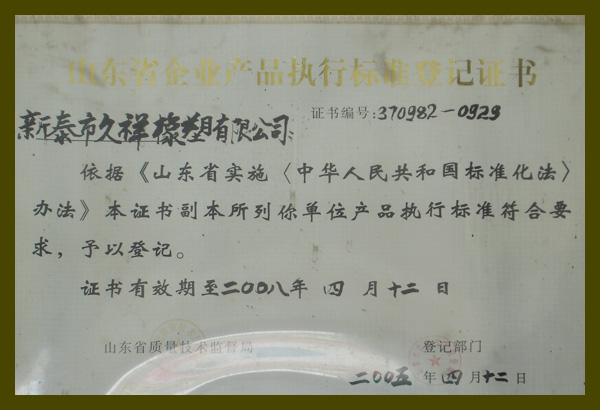 山东省企业产品执行标准登记证书
证书编号:370982-0929
新泰市久祥橡塑有限公司:
依据《山东省实施〈中华人民共和国标准化法〉
办法》本证书副本所列你单位产品执行标准符合要
求，予以登记。
证书有效期至二00八年 四 月 十二 日
山东省质量技术监督局 登记部门
二00五 年 四 月 十二 日